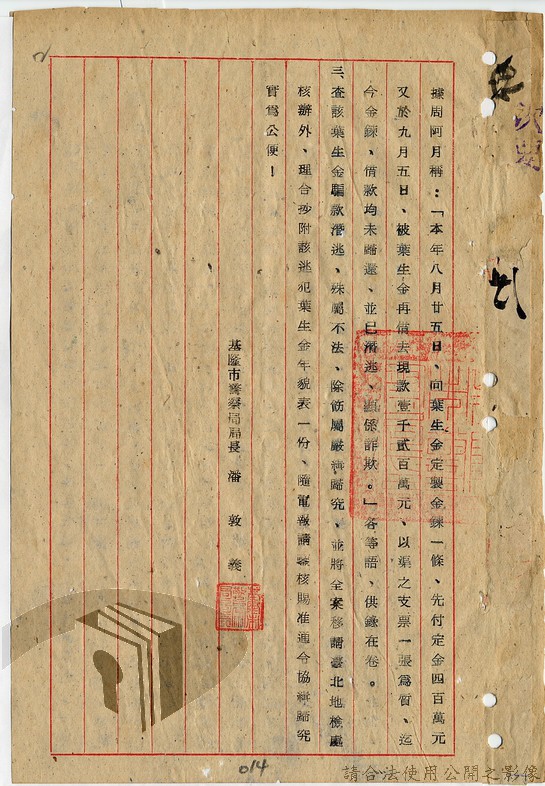 據周阿月稱：「本年八月廿五日、向葉生金定製金鍊一條、先付定金四百萬元
又於九月五日、被葉生金再借去現款壹千貳百萬元、以渠之支票一張爲質、迄
今金鍊、借款均未歸還、並已潛逃、顯係詐欺。」各等語、供錄在卷。
三、查該葉生金騙款潛逃、殊屬不法、除飭屬嚴緝歸究、並將全案移請臺北地檢處
核辦外、理合抄附該逃犯葉生金年貌表一份、隨電報請鑒核賜准通令協緝歸究
實爲公便！
基隆市警察局局長 潘敦義
014
請合法使用公開之影像